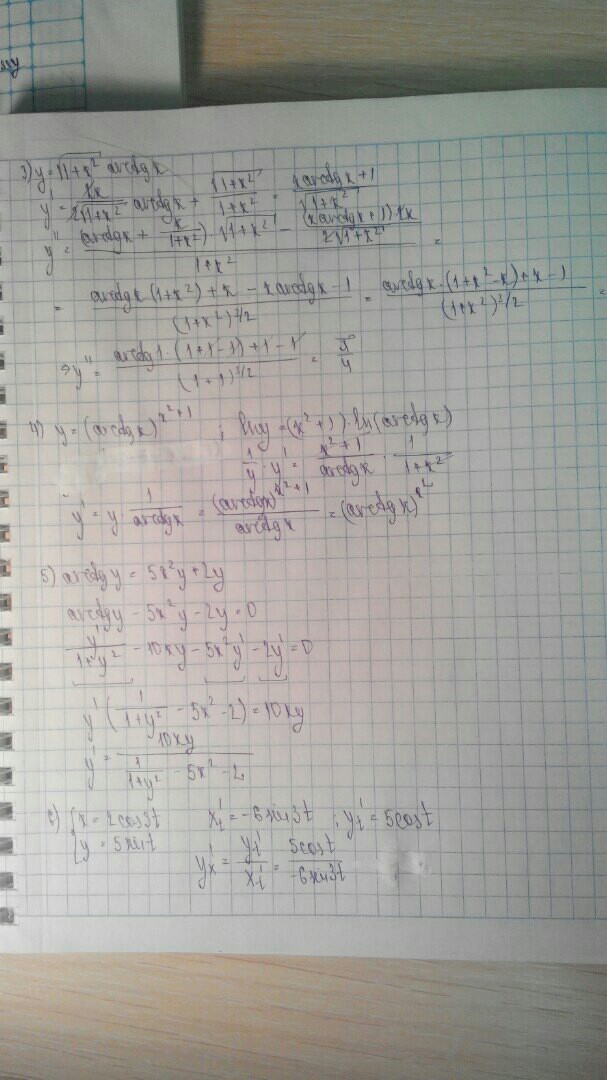 3) y = √(1+x²) arctg x
y' = 2x/(2√(1+x²)) arctg x + √(1+x²)/(1+x²) = (x arctg x + 1)/√(1+x²)
y'' = ((arctg x + x/(1+x²))·√(1+x²) − (x arctg x + 1)·2x/(2√(1+x²)))/(1+x²) =
= (arctg x (1+x²) + x − x arctg x − 1)/(1+x²)^(3/2) = (arctg x·(1+x²−x) + x − 1)/(1+x²)^(3/2) =
⇒ y'' = (arctg 1·(1+1−1)+1−1)/(1+1)^(3/2) = π/4
4) y = (arctg x)^(x²+1) ; ln y = (x²+1)·ln(arctg x)
1/y · y' = (x²+1)/(arctg x) · 1/(1+x²)
y' = y · 1/(arctg x) = (arctg x)^(x²+1)/(arctg x) = (arctg x)^(x²)
5) arctg y = 5x²y + 2y
arctg y − 5x²y − 2y = 0
y'/(1+y²) − 10xy − 5x²y' − 2y' = 0
y' (1/(1+y²) − 5x² − 2) = 10xy
y' = 10xy/(1/(1+y²) − 5x² − 2)
6) {x = 2cos3t x't = −6sin3t ; y't = 5cost
{y = 5sint
y'x = y't/x't = 5cost/(−6sin3t)